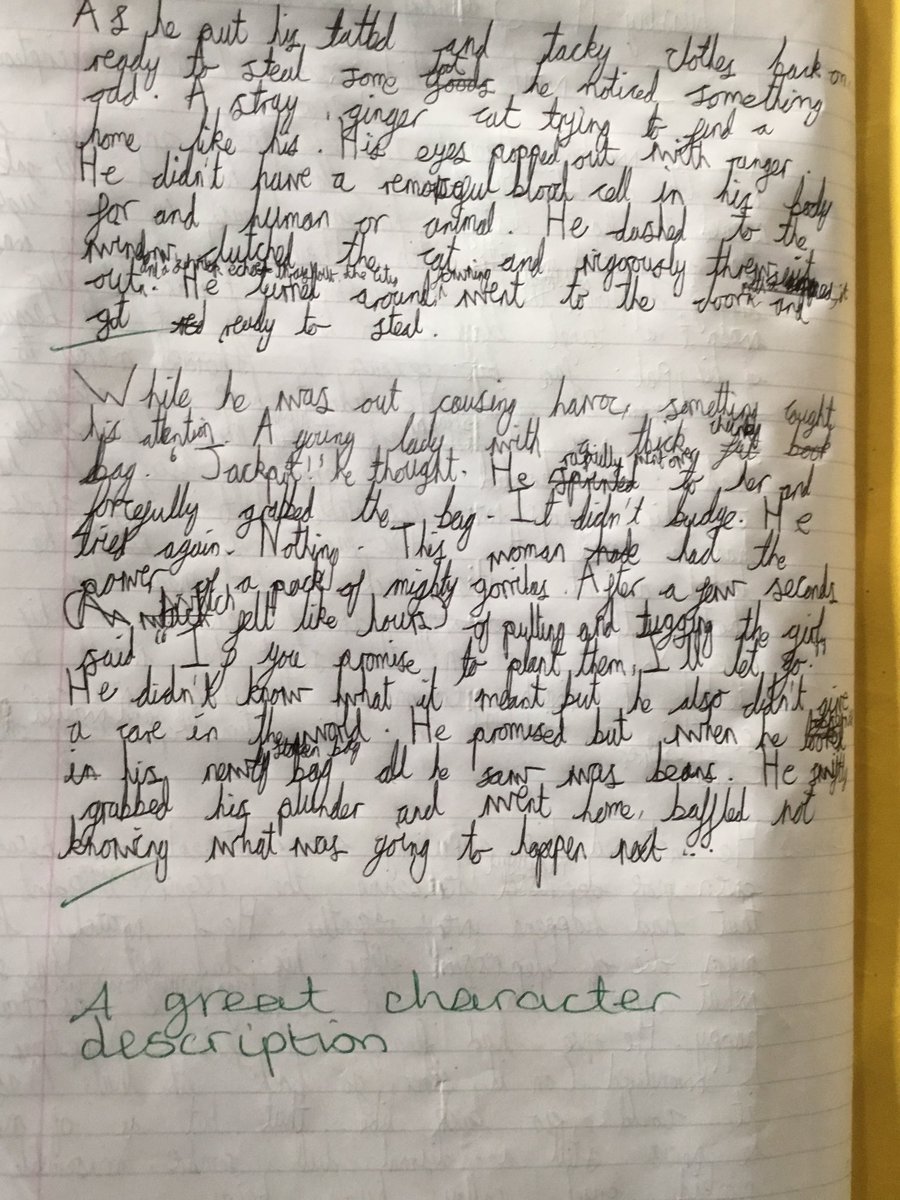 As he put his tatted and tacky clothes back on
ready to steal some goods he noticed something
odd. A stray, ginger cat trying to find a
home like his. His eyes popped out with ranger.
He didn't have a blood cell in his body
for and human or animal. He dashed to the
window, clutched the cat and vigorously threw it
out. He turned around went to the door and
got ready to steal.
While he was out cousing havoc, something cught
his attention. A young lady with thick chunky
bag. "Jackpot!" he thought. He to her and
forcefully grabbed the bag. It didn't budge. He
tried again. Nothing. This woman had the
power of a pack of mighty gorrilas. After a few seconds
(which felt like hours) of pulling and tugging the girl
said "If you promise to plant them, I'll let go."
He didn't know what it meant but he also didn't give
a care in the world. He promised but when he looked
in his newly stolen bag all he saw was beans. He swiftly
grabbed his plunder and went home, baffled not
knowing what was going to happen next...
A great character
description